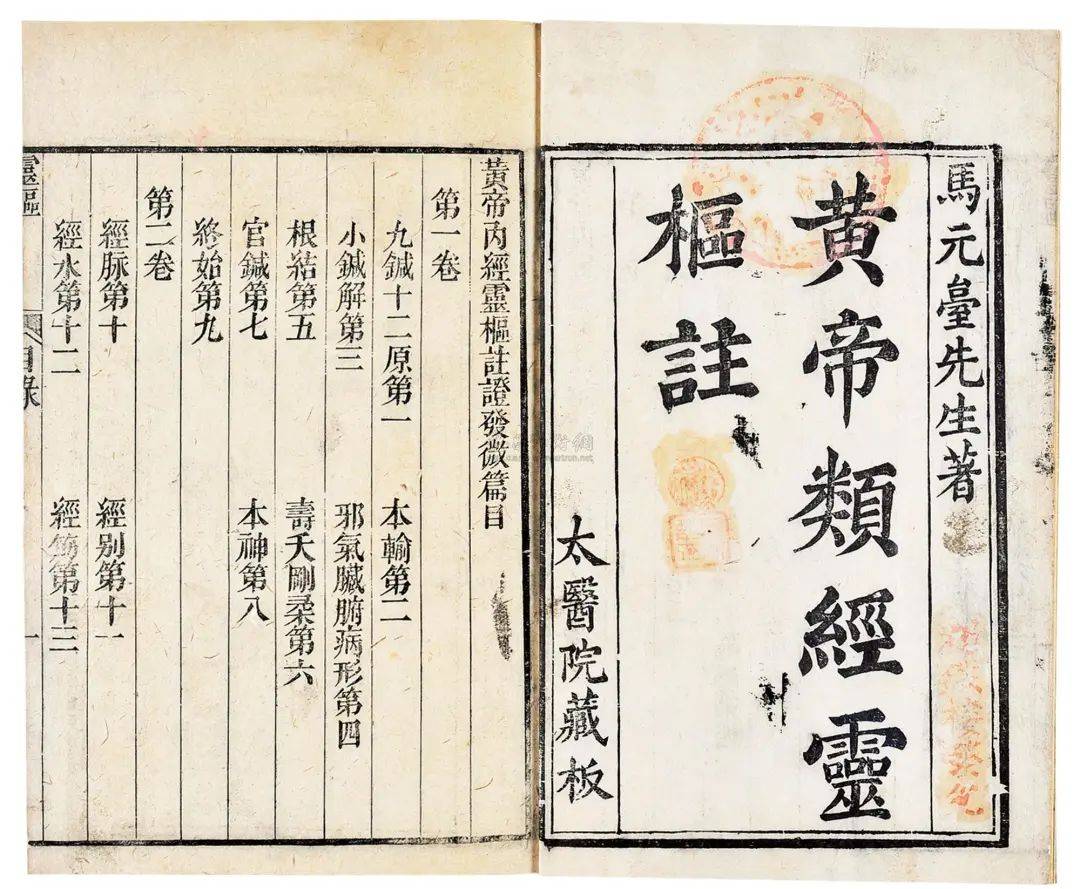 馬元臺先生著
黃帝類經靈
樞註
太醫院藏板
黃帝內經靈樞註證發微篇目
第一卷
九鍼十二原第一 本輸第二
小鍼解第三 邪氣臟腑病形第四
根結第五 壽夭剛柔第六
官鍼第七 本神第八
終始第九
第二卷
經脉第十 經别第十一
經水第十二 經筋第十三
靈樞
目錄
一